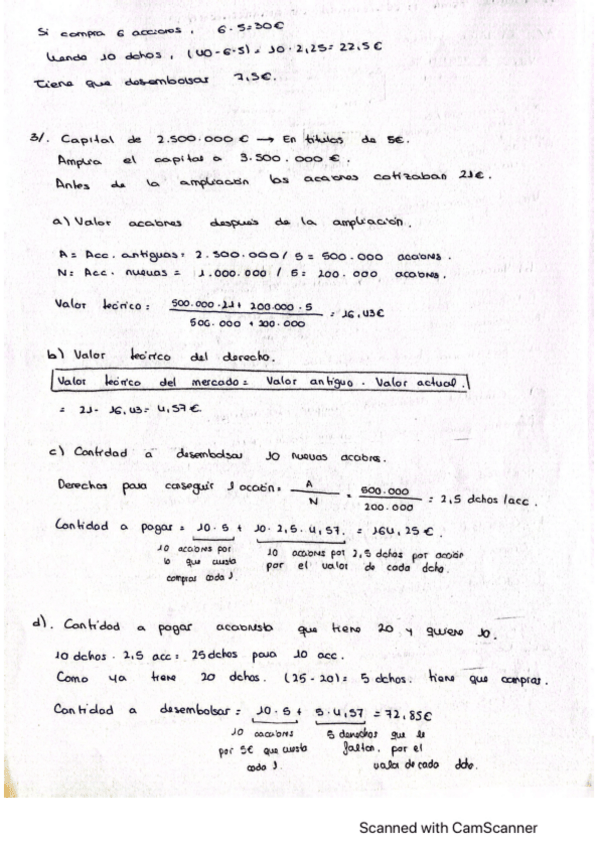 Si compra 6 acciones. 6·5=30€
(40-6·5)= 10·2,25= 22,5€
Tiene que desembolsar 7,5€.
3/. Capital de 2.500.000 € → En títulos de 5€.
Amplia el capital a 3.500.000 €.
Antes de la ampliación las acciones cotizaban 21€.
a) Valor acciones después de la ampliación.
A= Acc. antiguas= 2.500.000/5= 500.000 acciones.
N= Acc. nuevas = 1.000.000/5= 200.000 acciones.
Valor teórico= 500.000·21+ 200.000·5 / 500.000 + 200.000 = 16,43€
b) Valor teórico del derecho.
Valor teórico del mercado= Valor antiguo - Valor actual.
= 21- 16,43= 4,57€.
c) Cantidad a desembolsar 10 nuevas
Derechos para conseguir 1 acción= A / N = 500.000 / 200.000 = 2,5 dchos/acc.
Cantidad a pagar = 10·5 + 10·2,5·4,57. = 164,25€.
10 acciones por 10 acciones por 2,5 dchos por acción
lo que cuesta por el valor de cada dcho.
comprar cada 1.
d). Cantidad a pagar accionista que tiene 20 y quiere 10.
10 dchos · 2,5 acc= 25 dchos para 10 acc.
Como ya tiene 20 dchos. (25-20)= 5 dchos. tiene que comprar.
Cantidad a desembolsar= 10·5+ 5·4,57 = 72,85€
10 acciones 5 derechos que le
por 5€ que cuesta faltan, por el
cada 1. valor de cada dcho.
Scanned with CamScanner